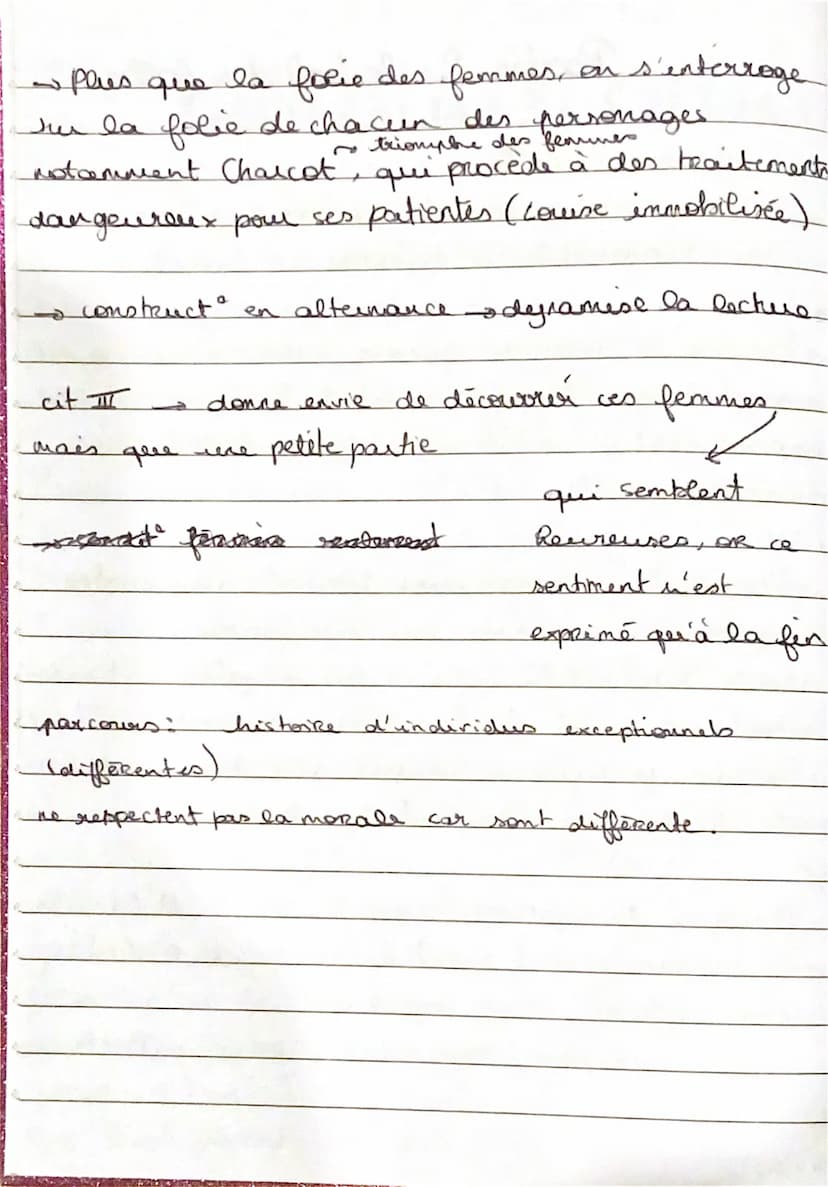 → Plus que la folie des femmes, on s'enterroge
sur la folie de chacun des personages
→ triomphe des femmes
notamment Charcot, qui procède à des traitements
dangeureux pour ses patientes (Louise immobilisée)
→ construct° en alternance → dynamise la lecture
cit III → donne envie de découvrir ces femmes,
mais que une petite partie
qui semblent
heureuses, or ce
sentiment n'est
exprimé qu'à la fin
parcours: histoire d'individus exceptionnels
(différentes)
ne respectent pas la morale car sont différente.